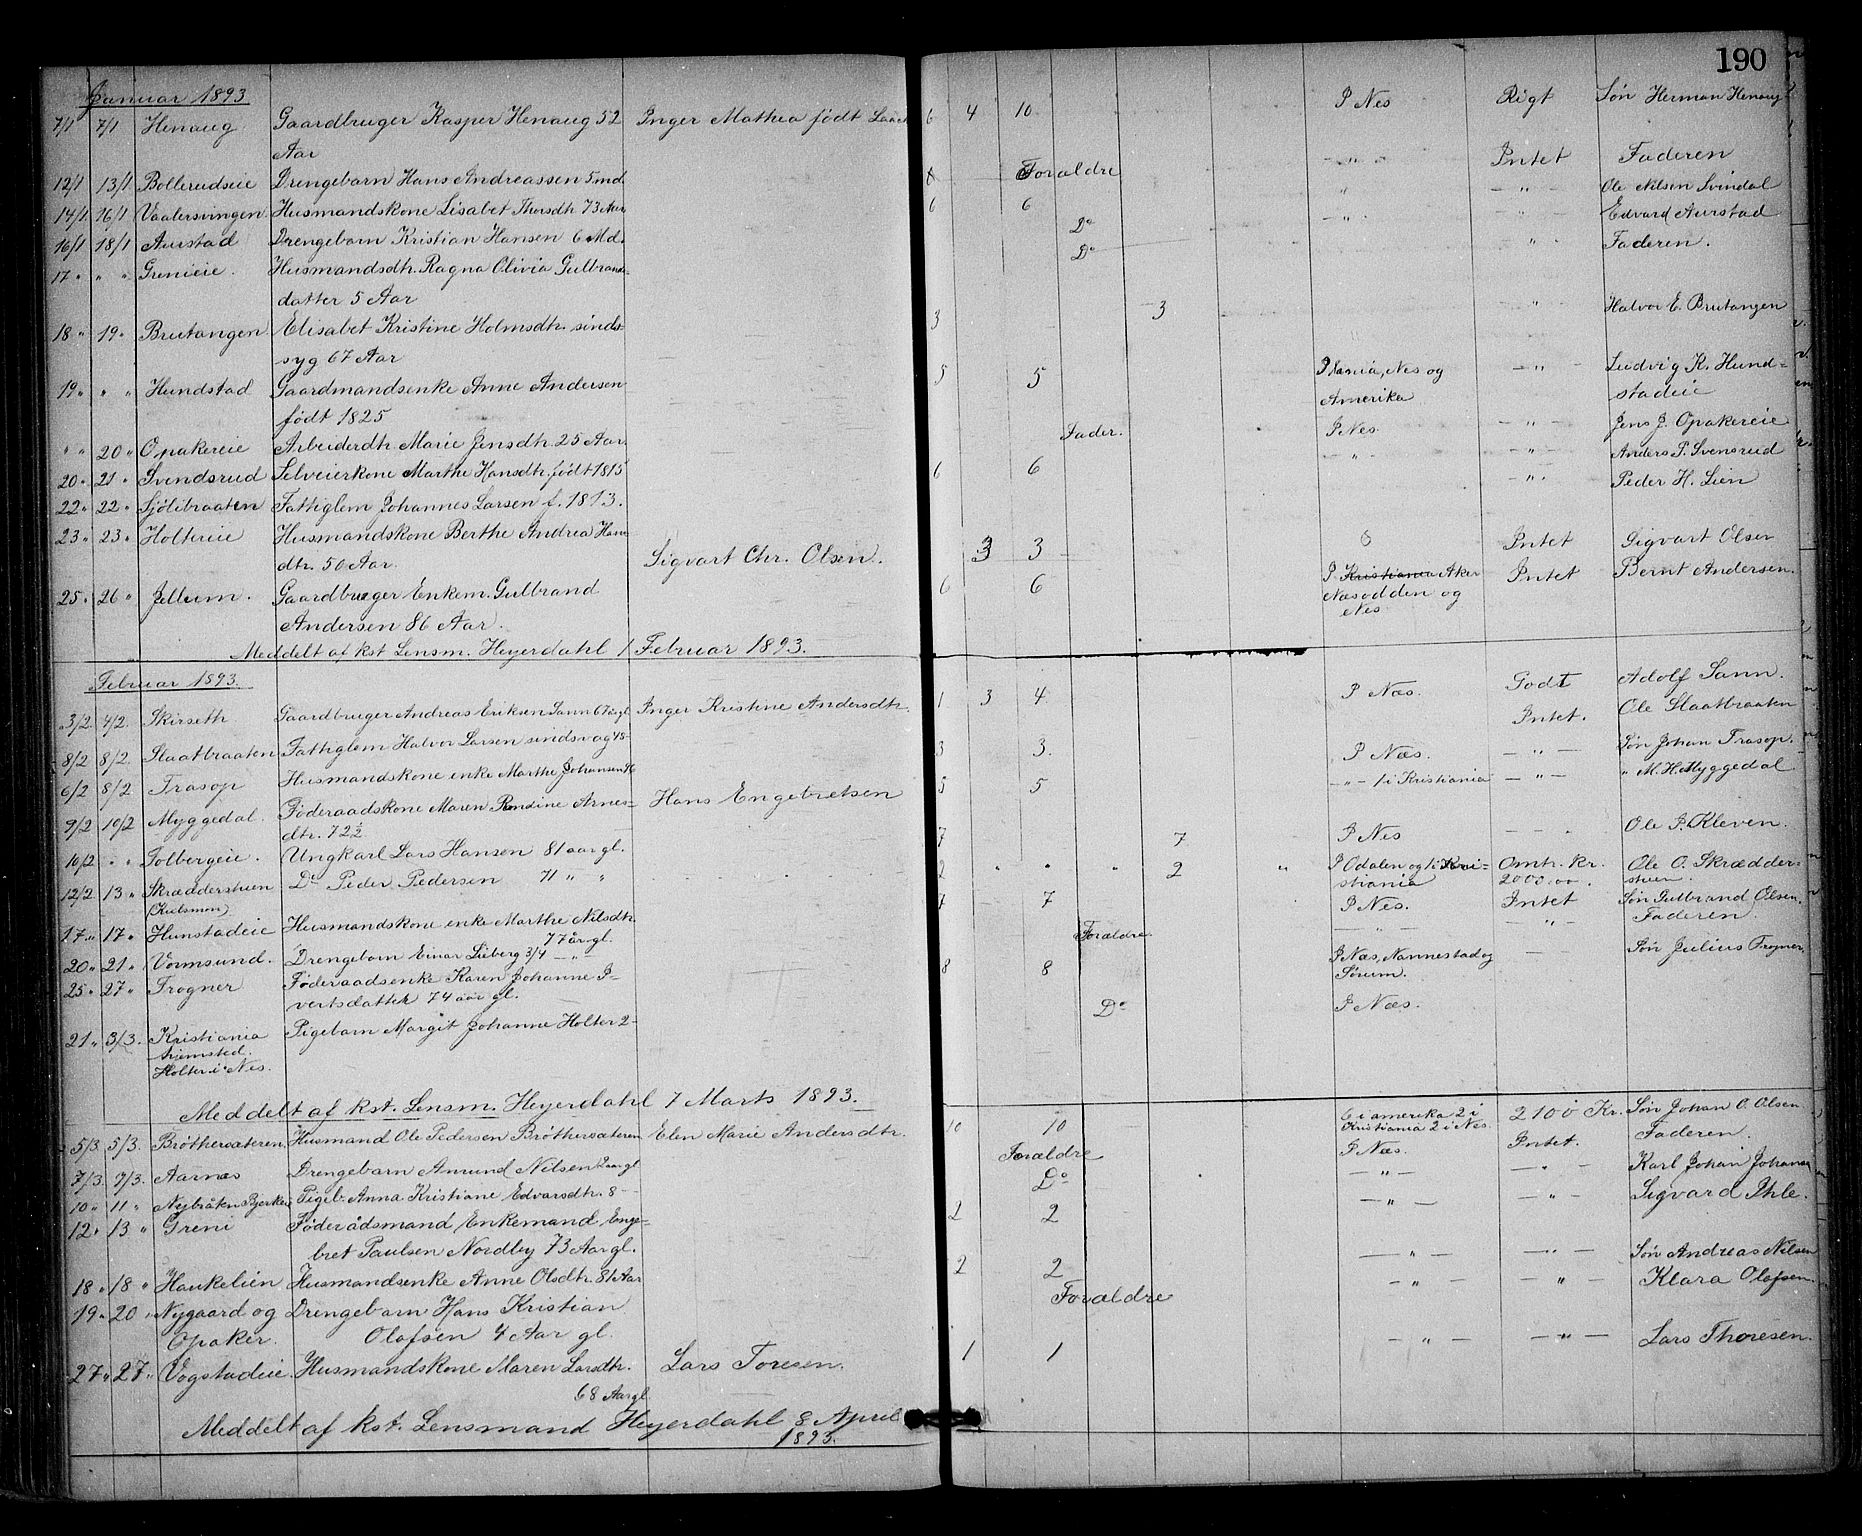 190
Januar 1893
7/1 7/1 Henaug Gaardbruger Kasper Henaug 52 Inger Mathea født 6 4 10 I Nes Rigt Søn Herman Henaug
Aar
12/1 13/1 Bollerudseie Drengebarn Hans Andreassen 5 md. Foraldre " Intet Faderen
14/1 16/1 Vaalersvingen Husmandskone Lisabet Thorsdtr. 73 Aar 6 6 " " Ole Nilsen Svindal
16/1 18/1 Aurstad Drengebarn Kristian Hansen 6 Md. Do " " Edvard Aurstad
17 " " " Grenieie. Husmandsdtr. Ragna Olivia Gulbrands- Do " Faderen.
datter 5 Aar
18 " 19 " Brutangen Elisabet Kristine Holmsdtr. sinds- 3 3 " Halvor E. Brutangen
syg 67 Aar
19 " " " Hundstad Gaardmandsenke Anne Andersen 5 5 Nes og " Ludvig K. Hund-
født 1825 Amerika stadeie
" " 20 " Opakereie Arbeiderdtr. Marie Jensdtr. 25 Aar. Fader. I Nes " Jens J. Opakereie
20 " 21 " Svendsrud Selveierkone Marthe Hansdtr. født 1815 6 6 " " Anders P. Svensrud
22 " 22 " Sjölibraaten Fattiglem Johannes Larsen f. 1813. " Peder H. Lien
23 " 23 " Holtereie Husmandskone Berthe Andrea Hans-
dtr. 50 Aar. Sigvart Chr. Olsen. 3 3 Intet Sigvart Olsen
25 " 26 " Jellum. Gaardbruger Enkem. Gulbrand 6 6 I Kristiania Aker Intet Bernt Andersen.
Andersen 86 Aar. Næsodden og
Nes
Meddelt af kst Lensm. Heyerdahl 1 Februar 1893.
Februar 1893.
3/2 4/2 Skirseth Gaardbruger Andreas Eriksen Sann 67 år gl. Inger Kristine Andersdtr. 1 3 4 I Næs. Godt Adolf Sann.
8/2 8/2 Slaatbraaten Fattiglem Halvor Larsen sindsvag 48 Intet. Ole Slaatbraaten
6/2 8/2 Trasop Husmandskone enke Marthe Johansen 3 3. I Næs. " Søn Johan Trasop.
9/2 10/2 Myggedal. Føderaadskone Maren Arnes- Hans Engebretsen 5 5 " 1 i Kristiania " " M. H. Myggedal
dtr. 72½
10/2 " " Solbergeie. Ungkarl Lars Hansen 81 aar gl. 7 7 I Nes " Ole P. Kleven.
12/2 13 " Skrædderstuen Do Peder Pedersen 71 " " 2 " " " 2 " I Odalen og 1 i Kri- Omtr. Kr. Ole O. Skrædder-
(Kulsmoen) stiania 2000.00. stuen.
17 " 17 " Hunstadeie Husmandskone enke Marthe Nilsdtr. 7 7 I Nes. Intet Søn Gulbrand Olsen.
77 år gl.
20 " 21 " Vormsund. Drengebarn Einar Lieberg 3/4 " Foraldre. " " Faderen.
25 " 27 " Frogner Føderaadsenke Karen Johanne I- 8 8 I Næs, Nannestad og Søn Julius Frogner
vertsdatter 74 aar gl. Sørum.
21 " 3/3. Kristiania Pigebarn Margit Johanne Holter 2- Do I Næs.
hjemsted.
Holter i Nes.
Meddelt af kst. Lensm. Heyerdahl 7 Marts 1893.
5/3. 5/3. Brøthersæteren. Husmand Ole Pedersen Brøthersæteren Elen Marie Andersdtr. 10 10 6 i amerika 2 i 2100 Kr. Søn Johan O. Olsen
Kristiania 2 i Nes.
7/3 9/3. Aarnæs Drengebarn Amund Nilsen 2 aar gl Foraldre I Næs. Intet. Faderen.
10 " 11 " Nejbråkn Bjerkeie Pigeb. Anna Kristiane Edvarsdtr. 8 - Do " " Karl Johan Johansen
12 " 13 " Greni Føderådsmand Enkemand Enge- 2 2 " " Sigvard Ihle.
bret Paulsen Nordby 73 Aar gl.
18 " 18 " Haukelien Husmandsenke Anne Olsdtr. 81 Aar 2 2 " " Søn Andreas Nilsen
19 " 20 " Nygaard og Drengebarn Hans Kristian Foraldre " " Klara Olafsen.
Opaker. Olafsen 4 Aar gl.
27 " 27 " Vogstadeie Husmandskone Maren Larsdtr. Lars Toresen. 1 1 " " Lars Thoresen.
68 Aar gl.
Meddelt af kst. Lensmand Heyerdahl 8 April
1893.